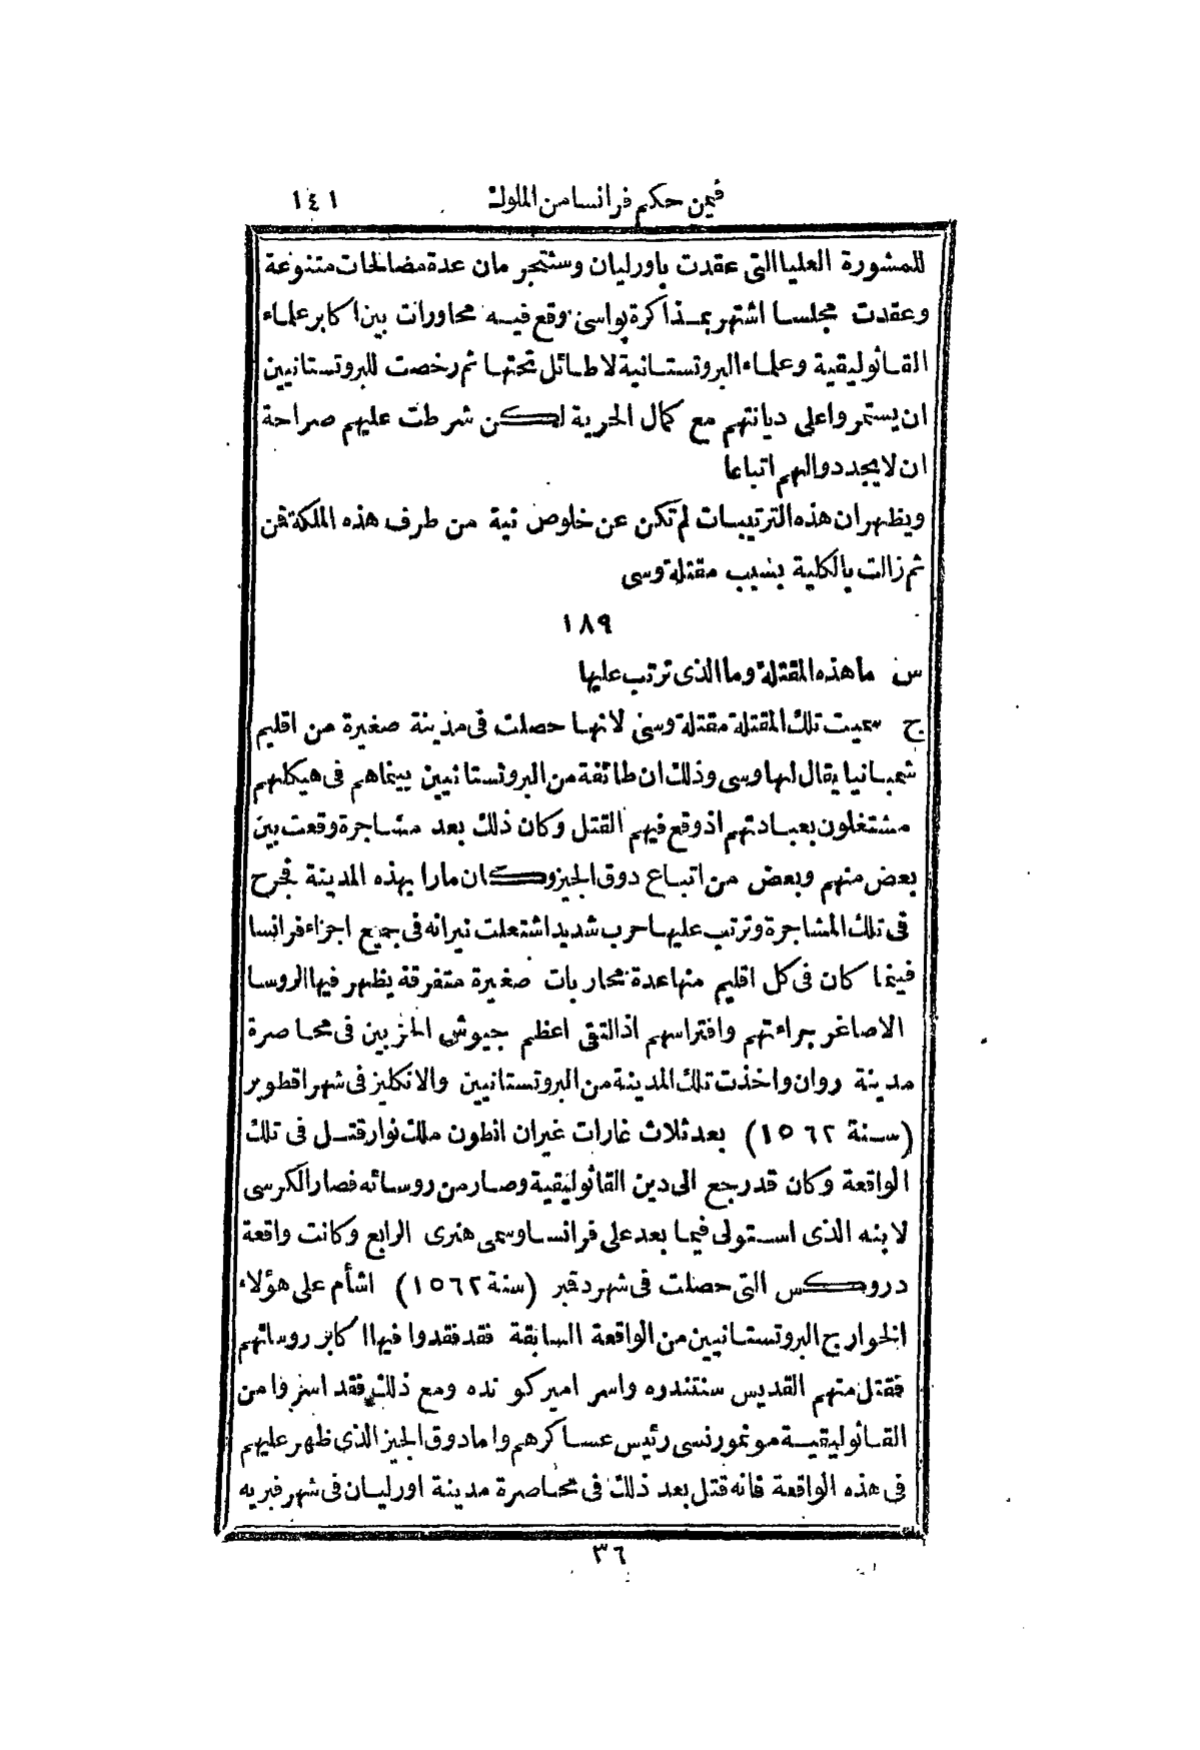 فيمن حكم فرانسا من الملوك ١٤١
للمشورة العليا التى عقدت باورليان وسنتجرمان عدة مصالحات متنوعة
وعقدت مجلسا اشتهر بمذاكرة بواسى وقع فيه محاورات بين اكابر علماء
القاثوليقية وعلماء البروتستانية لا طائل تحتها ثم رخصت للبروتستانيين
ان يستمروا على ديانتهم مع كمال الحرية لكن شرطت عليهم صراحة
ان لا يجددوا لهم اتباعا
ويظهر ان هذه الترتيبات لم تكن عن خلوص نية من طرف هذه الملكة فمن
ثم زالت بالكلية بسبب مقتلة وسى
١٨٩
س ما هذه المقتلة وما الذى ترتب عليها
ج سميت تلك المقتلة مقتلة وسى لانها حصلت فى مدينة صغيرة من اقليم
شمبانيا يقال لها وسى وذلك ان طائفة من البروتستانيين بينما هم فى هيكلهم
مشتغلون بعبادتهم اذ وقع فيهم القتل وكان ذلك بعد مشاجرة وقعت بين
بعض منهم وبعض من اتباع دوق الجيز وكان مارا بهذه المدينة فجرح
فى تلك المشاجرة وترتب عليها حرب شديد اشتعلت نيرانه فى جميع اجزاء فرانسا
فينما كان فى كل اقليم منها عدة محاربات صغيرة متفرقة يظهر فيها الروسا
الاصاغر جراءتهم وافتراسهم اذ التقى اعظم جيوش الحزبين فى محاصرة
مدينة روان واخذت تلك المدينة من البروتستانيين والانكليز فى شهر اقطوبر
(سنة ١٥٦٢) بعد ثلاث غارات غير ان انطون ملك نوار قتل فى تلك
الواقعة وكان قد رجع الى دين القاثوليقية وصار من روسائه فصار الكرسى
لابنه الذى استولى فيما بعد على فرانسا وسمى هنرى الرابع وكانت واقعة
دروكس التى حصلت فى شهر دقبر (سنة ١٥٦٢) اشأم على هؤلاء
الخوارج البروتستانيين من الواقعة السابقة فقد فقدوا فيها اكابر روسائهم
فقتل منهم القديس سنتندره واسر امير كونده ومع ذلك فقد اسروا من
القاثوليقية مونمورنسى رئيس عساكرهم واما دوق الجيز الذى ظهر عليهم
فى هذه الواقعة فانه قتل بعد ذلك فى محاصرة مدينة اورليان فى شهر فبريه
٣٦